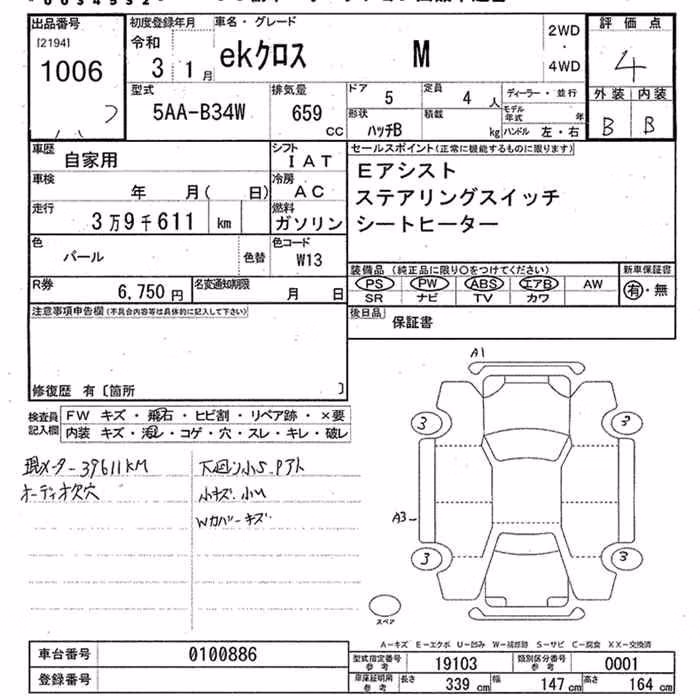 出品番号 初度登録年月 車名・グレード 2WD 評価点
[2194] 令和 ekクロス M ・ 4
1006 3 1月 4WD
型式 排気量 ドア 5 定員 4人 ディーラー・並行 外装 内装
5AA-B34W 659 cc 形状 ハッチB 積載 kg モデル年式 年 B B
ハンドル 左・右
車歴 自家用 シフト IAT セールスポイント(正常に機能するものに限ります)
車検 年 月( 日) 冷房 AC Eアシスト
走行 3万9千611 km 燃料 ガソリン ステアリングスイッチ
シートヒーター
色 パール 色替 色コード W13
装備品(純正品に限り○をつけてください) 新車保証書
PS PW ABS エアB AW 有・無
SR ナビ TV カワ
R券 6,750円 名変通知期限 月 日
注意事項申告欄(不具合内容等は具体的に記入して下さい) 後日品 保証書
修復歴 有〔箇所 〕
検査員記入欄 FW キズ・飛石・ヒビ割・リペア跡・×要
内装 キズ・汚レ・コゲ・穴・スレ・キレ・破レ
現メーター39611KM 下廻り小S.Pアト
オーディオ欠穴 小キズ.小U
Wカバーキズ
A1
3 3
A3
3 3
スペア
A-キズ E-エクボ U-凹ミ W-補修跡 S-サビ C-腐食 XX-交換済
車台番号 0100886 型式指定番号 参考 19103 類別区分番号 参考 0001
登録番号 車庫証明用 参考 長さ 339cm 幅 147cm 高さ 164cm